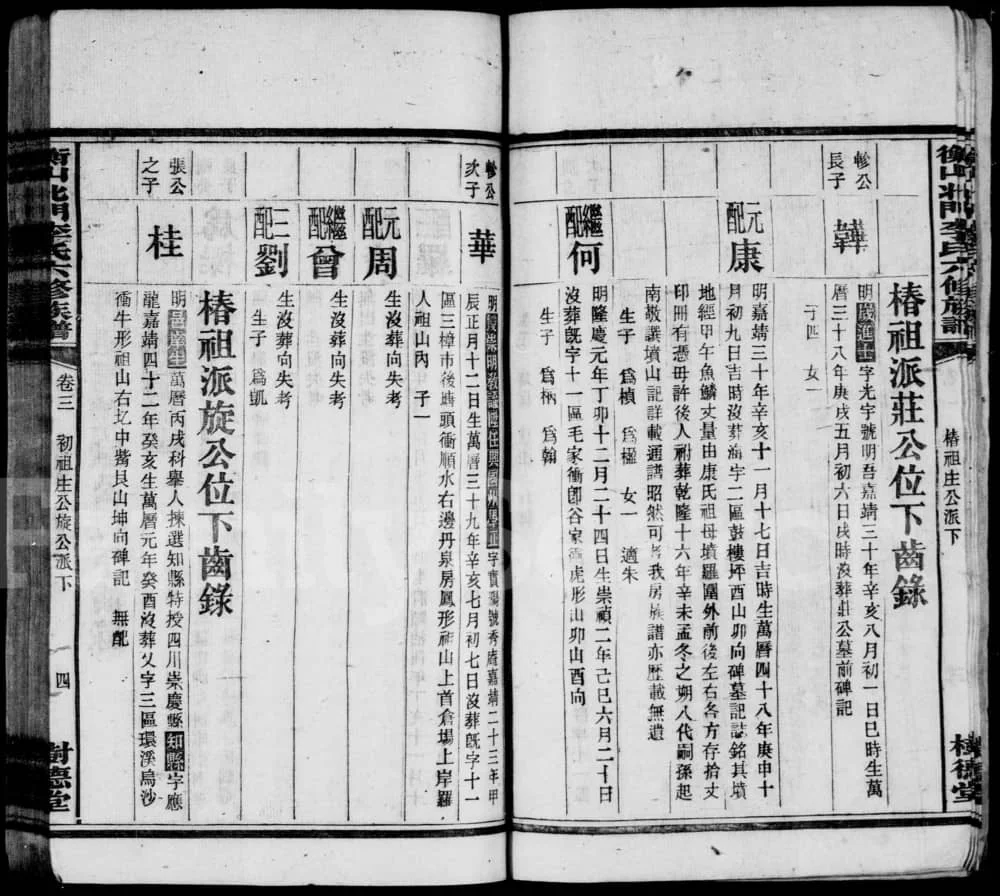 衡山北門李氏六修族譜
椿祖庄公派下
樹德堂
椿祖派莊公位下齒錄
軫公
長子
韡
明歲進士字光宇號明吾嘉靖三十年辛亥八月初一日巳時生萬
曆三十八年庚戌五月初六日戌時沒葬莊公墓前碑記
子四 女一
元配
康
明嘉靖三十年辛亥十一月十七日吉時生萬曆四十八年庚申十
月初九日吉時沒葬海字二區鼓樓坪酉山卯向碑墓記誌銘其墳
地經甲午魚鱗丈量由康氏祖母墳羅圍外前後左右各方存拾丈
印冊有憑毋許後人祔葬乾隆十六年辛未孟冬之朔八代嗣孫起
南敬譔墳山記詳載通譜昭然可考我房族譜亦歷載無遺
生子 爲楨 爲楹 女一 適朱
繼配
何
明隆慶元年丁卯十二月二十四日生崇禎二年己巳六月二十日
沒葬旣字十一區毛家衝卽谷家 虎形山卯山酉向
生子 爲柄 爲翰
軫公
次子
華
字實 號秀庵嘉靖二十三年甲
辰正月十二日生萬曆三十九年辛亥七月初七日沒葬旣字十一
區三樟市後塘頭衝順水右邊丹泉房鳳形祖山上首倉場上岸羅
人祖山內 子一
元配
周
生沒葬向失考
繼配
曾
生沒葬向失考
三配
劉
生沒葬向失考
生子 爲凱
椿祖派旋公位下齒錄
張公
之子
桂
明邑庠生萬曆丙戌科舉人揀選知縣特授四川崇慶縣知縣字應
龍嘉靖四十二年癸亥生萬曆元年癸酉沒葬乂字三區環溪烏沙
衝牛形祖山右圠中嘴艮山坤向碑記 無配
衡山北門李氏六修族譜
卷三
初祖庄公旋公派下
四
樹德堂